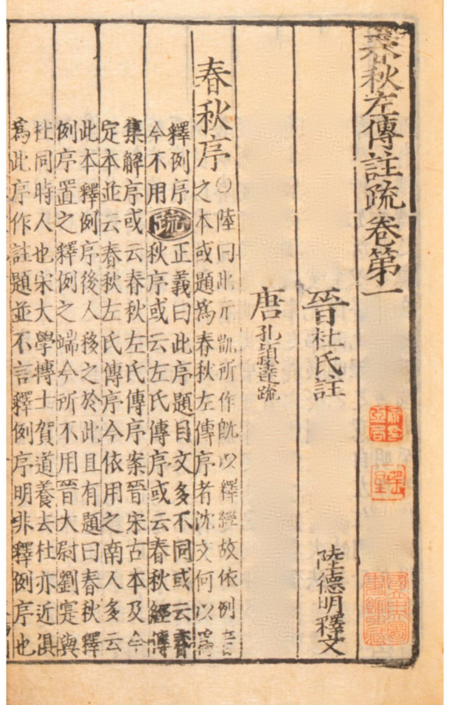 春秋左傳註疏卷第一
晉杜氏註 陸德明釋文
唐孔頴達疏
春秋序
○陸曰此元凱所作旣以釋經故依例音
之本或題爲春秋左傳序者沈文何以爲
釋例序
今不用
疏
正義曰此序題目文多不同或云春
秋序或云左氏傳序或云春秋經傳
集解序或云春秋左氏傳序案晉宋古本及今
定本並云春秋左氏傳序今依用之南人多云
此本釋例序後人移之於此且有題曰春秋釋
例序置之釋例之端今所不用晉大尉劉寔與
杜同時人也宋大學博士賀道養去杜亦近俱
爲此序作註題並不言釋例序明非釋例序也